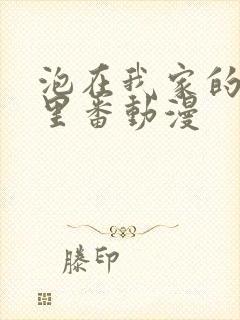 泡在我家的
里番動漫
滕印